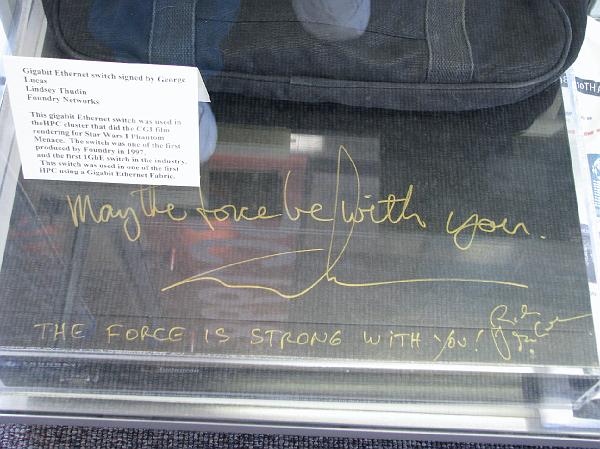 Gigabit Ethernet switch signed by George
Lucas
Lindsey Thudin
Foundry Networks
This gigabit Ethernet switch was used in
theHPC cluster that did the CGI film
rendering for Star Wars I Phantom
Menace. The switch was one of the first
produced by Foundry in 1997.
and the first 1GbE switch in the industry.
This switch was used in one of the first
HPC using a Gigabit Ethernet Fabric.
May the force be with you.
THE FORCE IS STRONG WITH YOU!
10TH